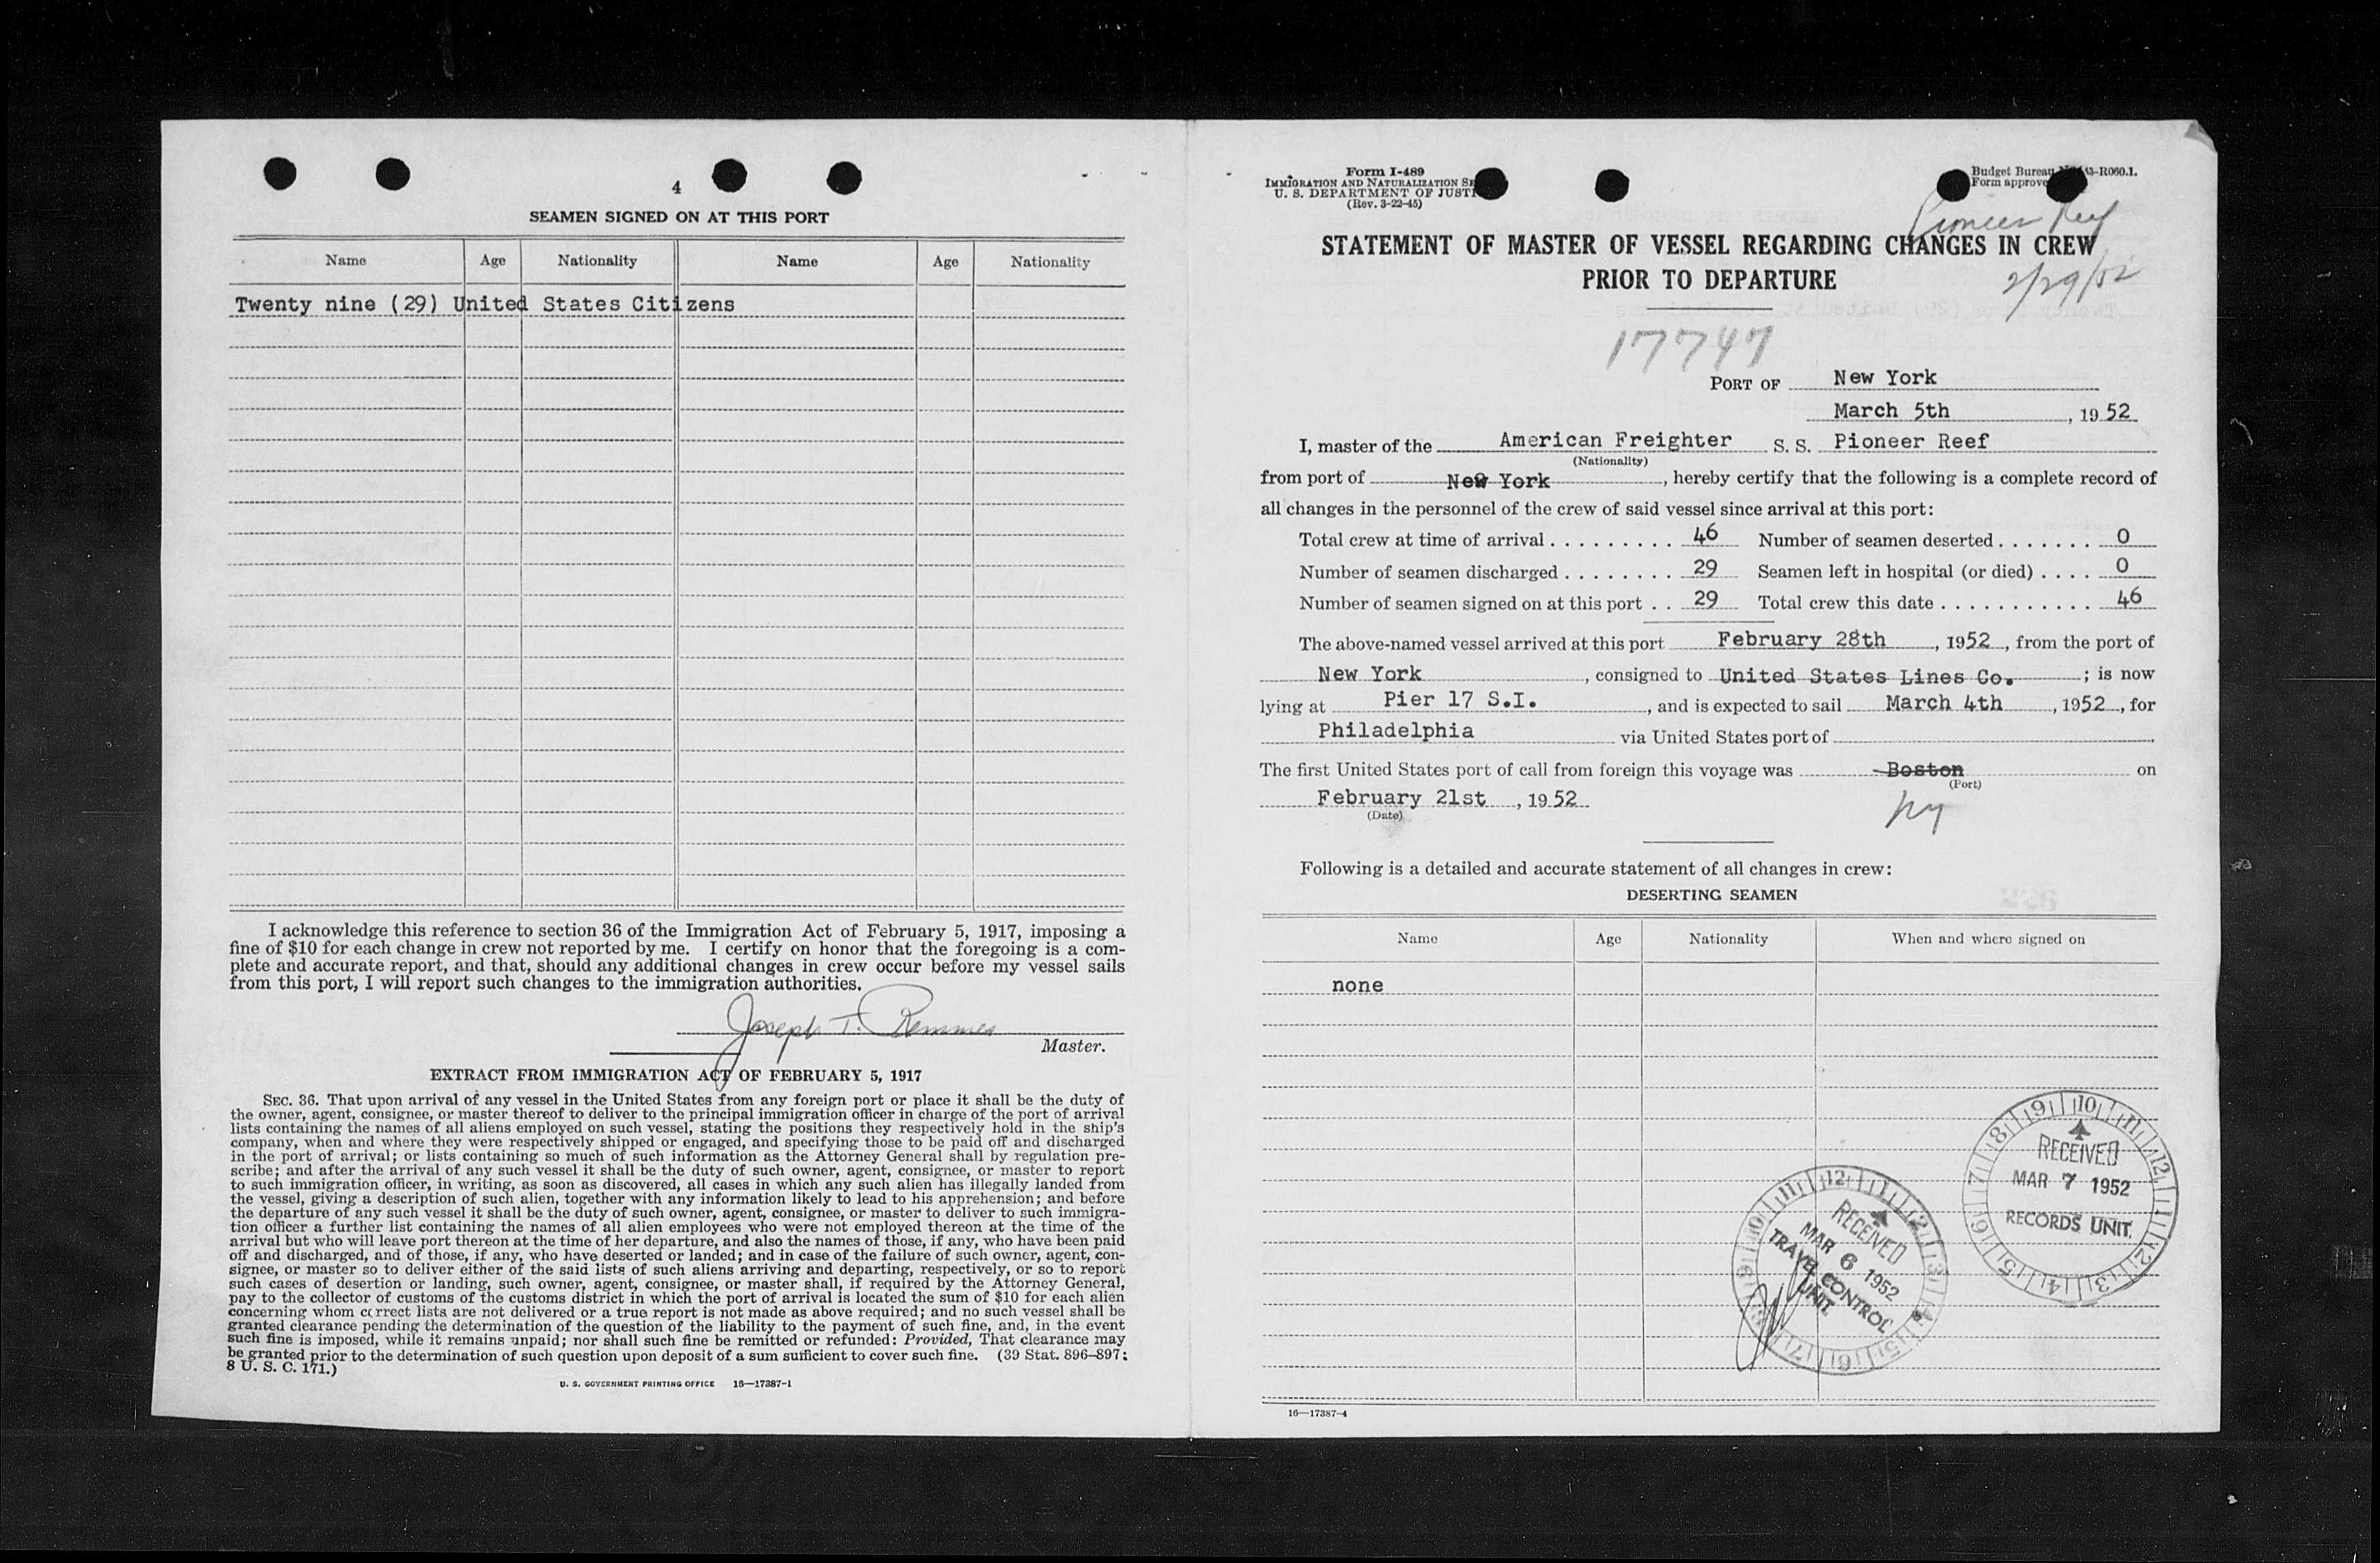 4
SEAMEN SIGNED ON AT THIS PORT
Name Age Nationality Name Age Nationality
Twenty nine (29) United States Citizens
I acknowledge this reference to section 36 of the Immigration Act of February 5, 1917, imposing a
fine of $10 for each change in crew not reported by me. I certify on honor that the foregoing is a com-
plete and accurate report, and that, should any additional changes in crew occur before my vessel sails
from this port, I will report such changes to the immigration authorities.
Joseph T.
Master.
EXTRACT FROM IMMIGRATION ACT OF FEBRUARY 5, 1917
SEC. 36. That upon arrival of any vessel in the United States from any foreign port or place it shall be the duty of
the owner, agent, consignee, or master thereof to deliver to the principal immigration officer in charge of the port of arrival
lists containing the names of all aliens employed on such vessel, stating the positions they respectively hold in the ship's
company, when and where they were respectively shipped or engaged, and specifying those to be paid off and discharged
in the port of arrival; or lists containing so much of such information as the Attorney General shall by regulation pre-
scribe; and after the arrival of any such vessel it shall be the duty of such owner, agent, consignee, or master to report
to such immigration officer, in writing, as soon as discovered, all cases in which any such alien has illegally landed from
the vessel, giving a description of such alien, together with any information likely to lead to his apprehension; and before
the departure of any such vessel it shall be the duty of such owner, agent, consignee, or master to deliver to such immigra-
tion officer a further list containing the names of all alien employees who were not employed thereon at the time of the
arrival but who will leave port thereon at the time of her departure, and also the names of those, if any, who have been paid
off and discharged, and of those, if any, who have deserted or landed; and in case of the failure of such owner, agent, con-
signee, or master so to deliver either of the said lists of such aliens arriving and departing, respectively, or so to report
such cases of desertion or landing, such owner, agent, consignee, or master shall, if required by the Attorney General,
pay to the collector of customs of the customs district in which the port of arrival is located the sum of $10 for each alien
concerning whom correct lists are not delivered or a true report is not made as above required; and no such vessel shall be
granted clearance pending the determination of the question of the liability to the payment of such fine, and, in the event
such fine is imposed, while it remains unpaid; nor shall such fine be remitted or refunded: Provided, That clearance may
be granted prior to the determination of such question upon deposit of a sum sufficient to cover such fine. (39 Stat. 896–897;
8 U. S. C. 171.)
U. S. GOVERNMENT PRINTING OFFICE 16—17387-1
Form I-489
IMMIGRATION AND NATURALIZATION SE
U. S. DEPARTMENT OF JUSTI
(Rev. 3-22-45)
Budget Bureau 43-R060.1.
Form approve
Pioneer Reef
STATEMENT OF MASTER OF VESSEL REGARDING CHANGES IN CREW
PRIOR TO DEPARTURE
2/29/52
17747
PORT OF New York
March 5th, 1952
I, master of the American Freighter S. S. Pioneer Reef
(Nationality)
from port of New York, hereby certify that the following is a complete record of
all changes in the personnel of the crew of said vessel since arrival at this port:
Total crew at time of arrival . . . . . . . . . 46 Number of seamen deserted . . . . . . . 0
Number of seamen discharged . . . . . . . . 29 Seamen left in hospital (or died) . . . . 0
Number of seamen signed on at this port . . 29 Total crew this date . . . . . . . . . . . . 46
The above-named vessel arrived at this port February 28th, 1952, from the port of
New York, consigned to United States Lines Co.; is now
lying at Pier 17 S.I., and is expected to sail March 4th, 1952, for
Philadelphia via United States port of
The first United States port of call from foreign this voyage was Boston on
(Port)
February 21st, 1952
(Date)
NY
Following is a detailed and accurate statement of all changes in crew:
DESERTING SEAMEN
Name Age Nationality When and where signed on
none
RECEIVED
MAR 7 1952
RECORDS UNIT.
RECEIVED
MAR 6 1952
TRAVEL CONTROL
UNIT.
16—17387-4